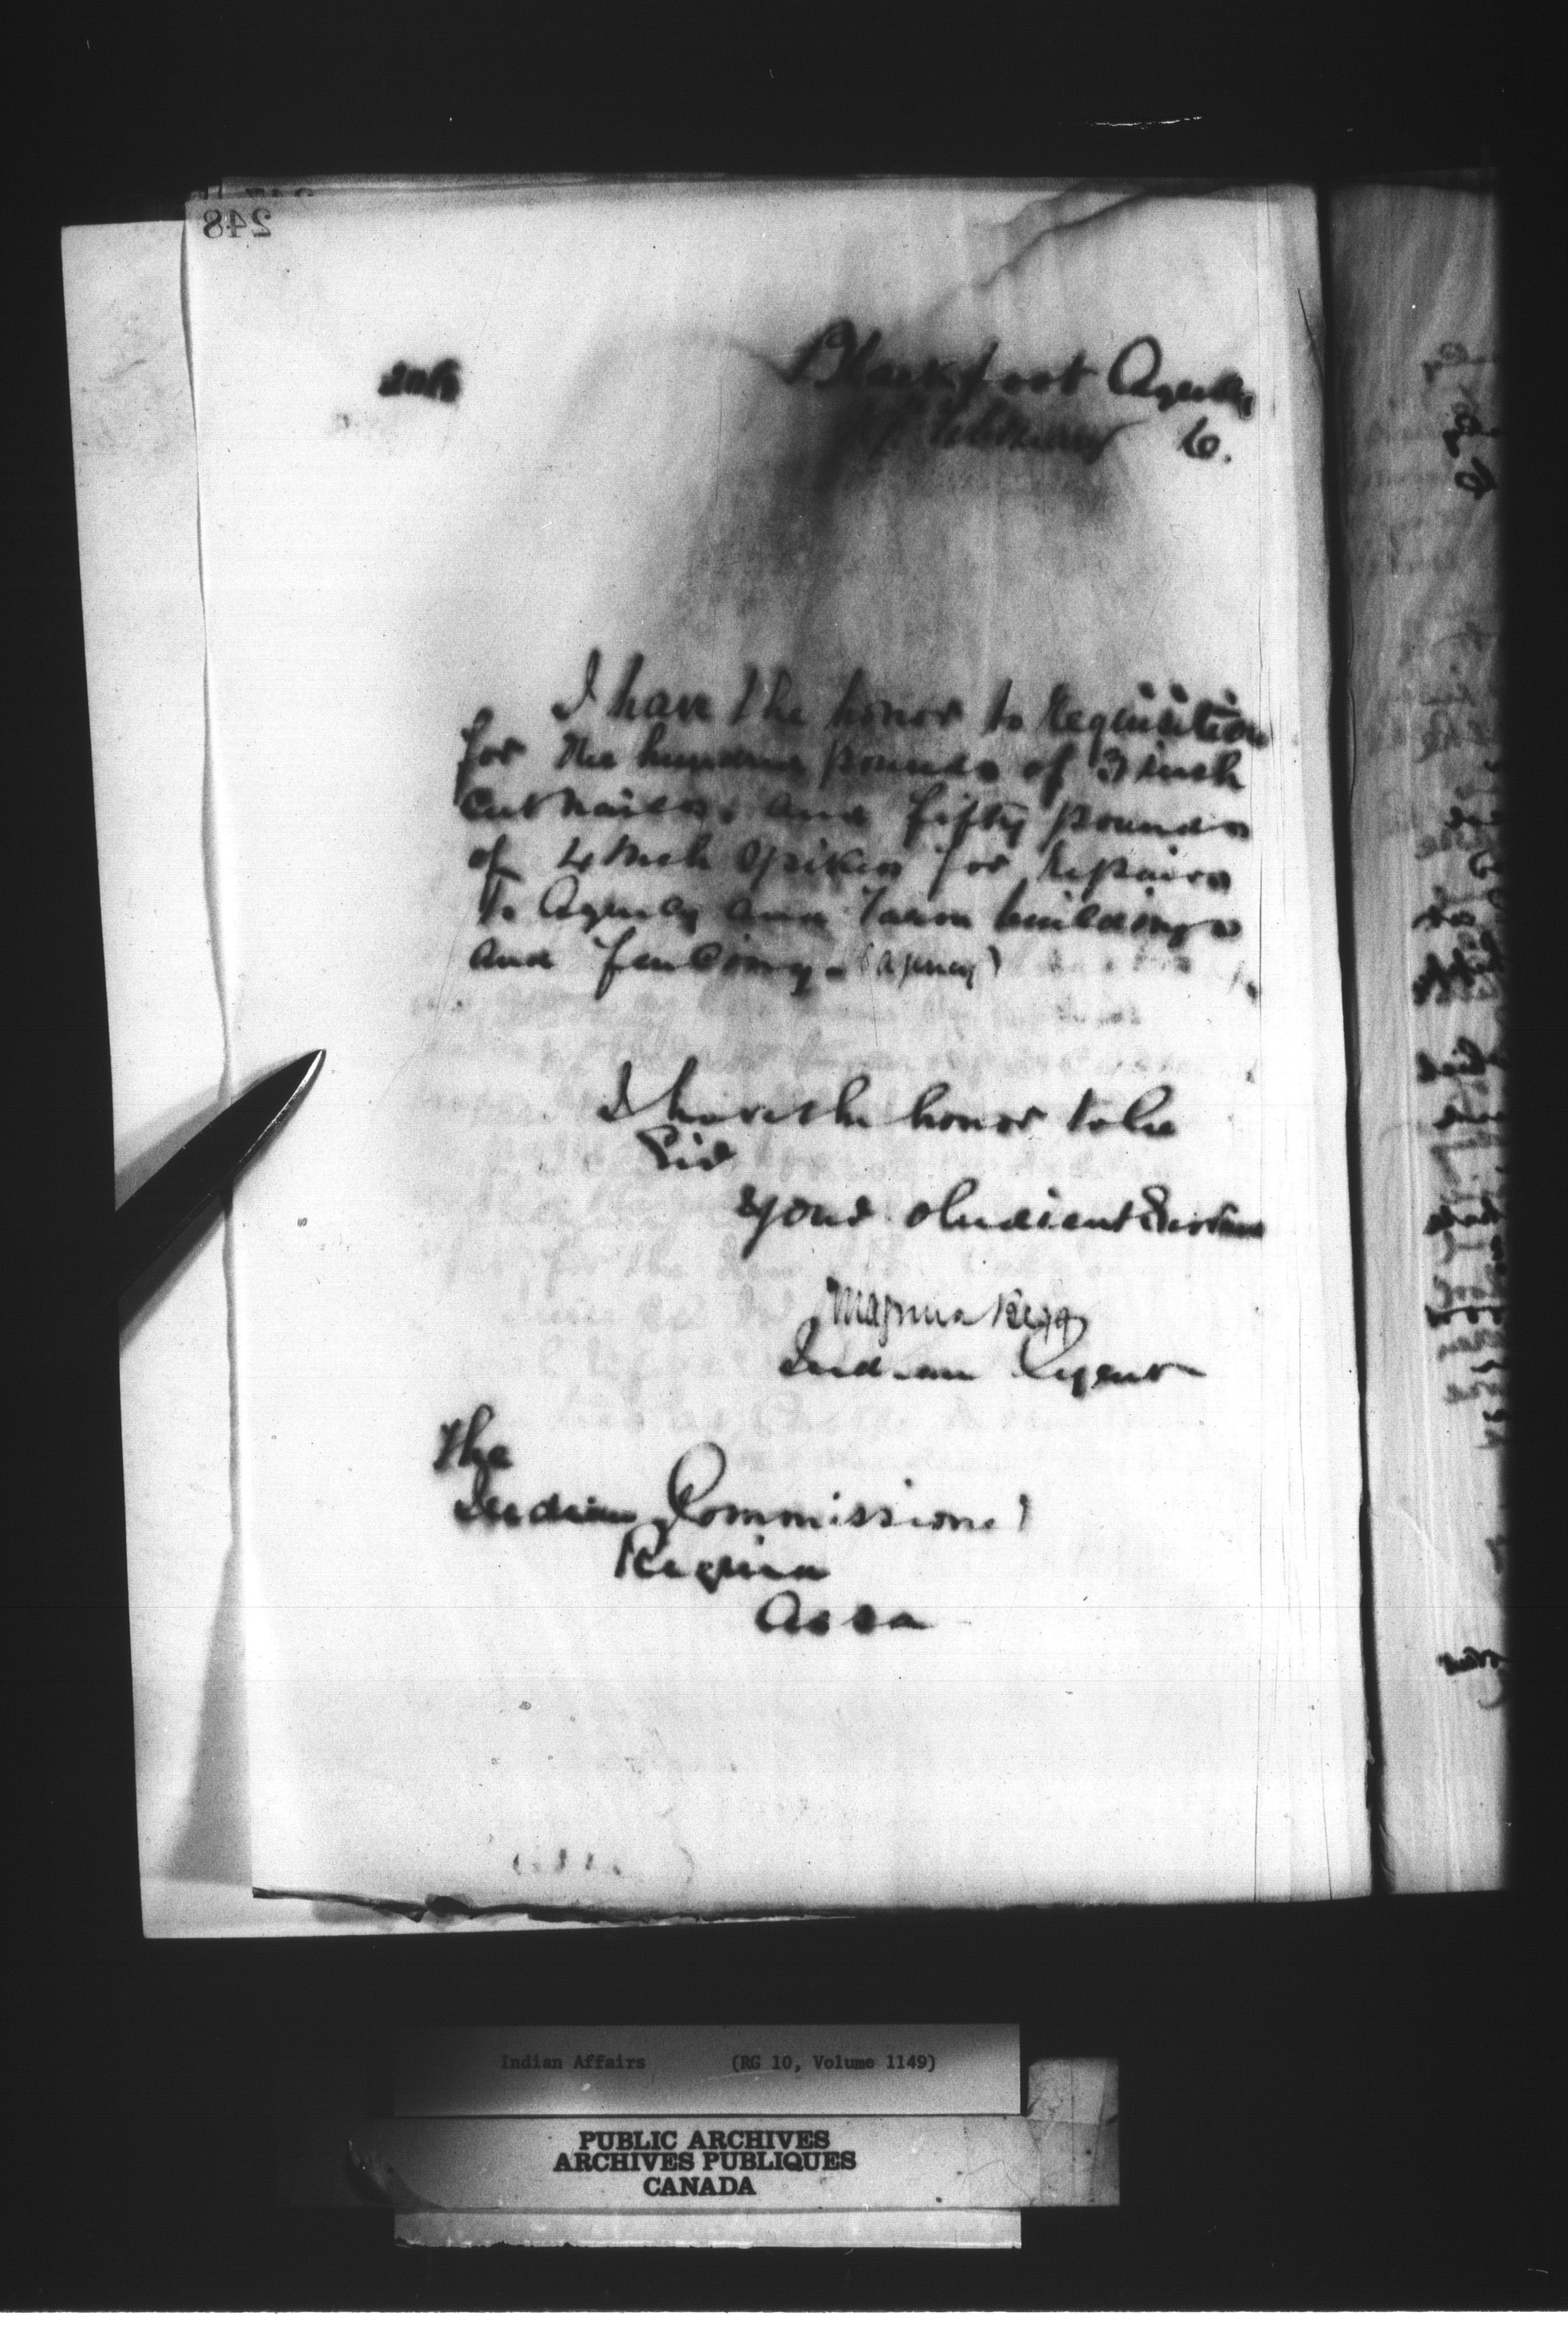 248
Blackfoot Agency
February 6.
I have the honor to requisition
for one hundred pounds of 3 inch
cut nails, and fifty pounds
of 4 inch spikes for repairs
to Agency and Farm buildings
and fencing. (agency)
I have the honor to be
Sir
Your obedient Servant
Magnus Begg
Indian Agent
The
Indian Commissioner
Regina
Assa
Indian Affairs (RG 10, Volume 1149)
PUBLIC ARCHIVES
ARCHIVES PUBLIQUES
CANADA